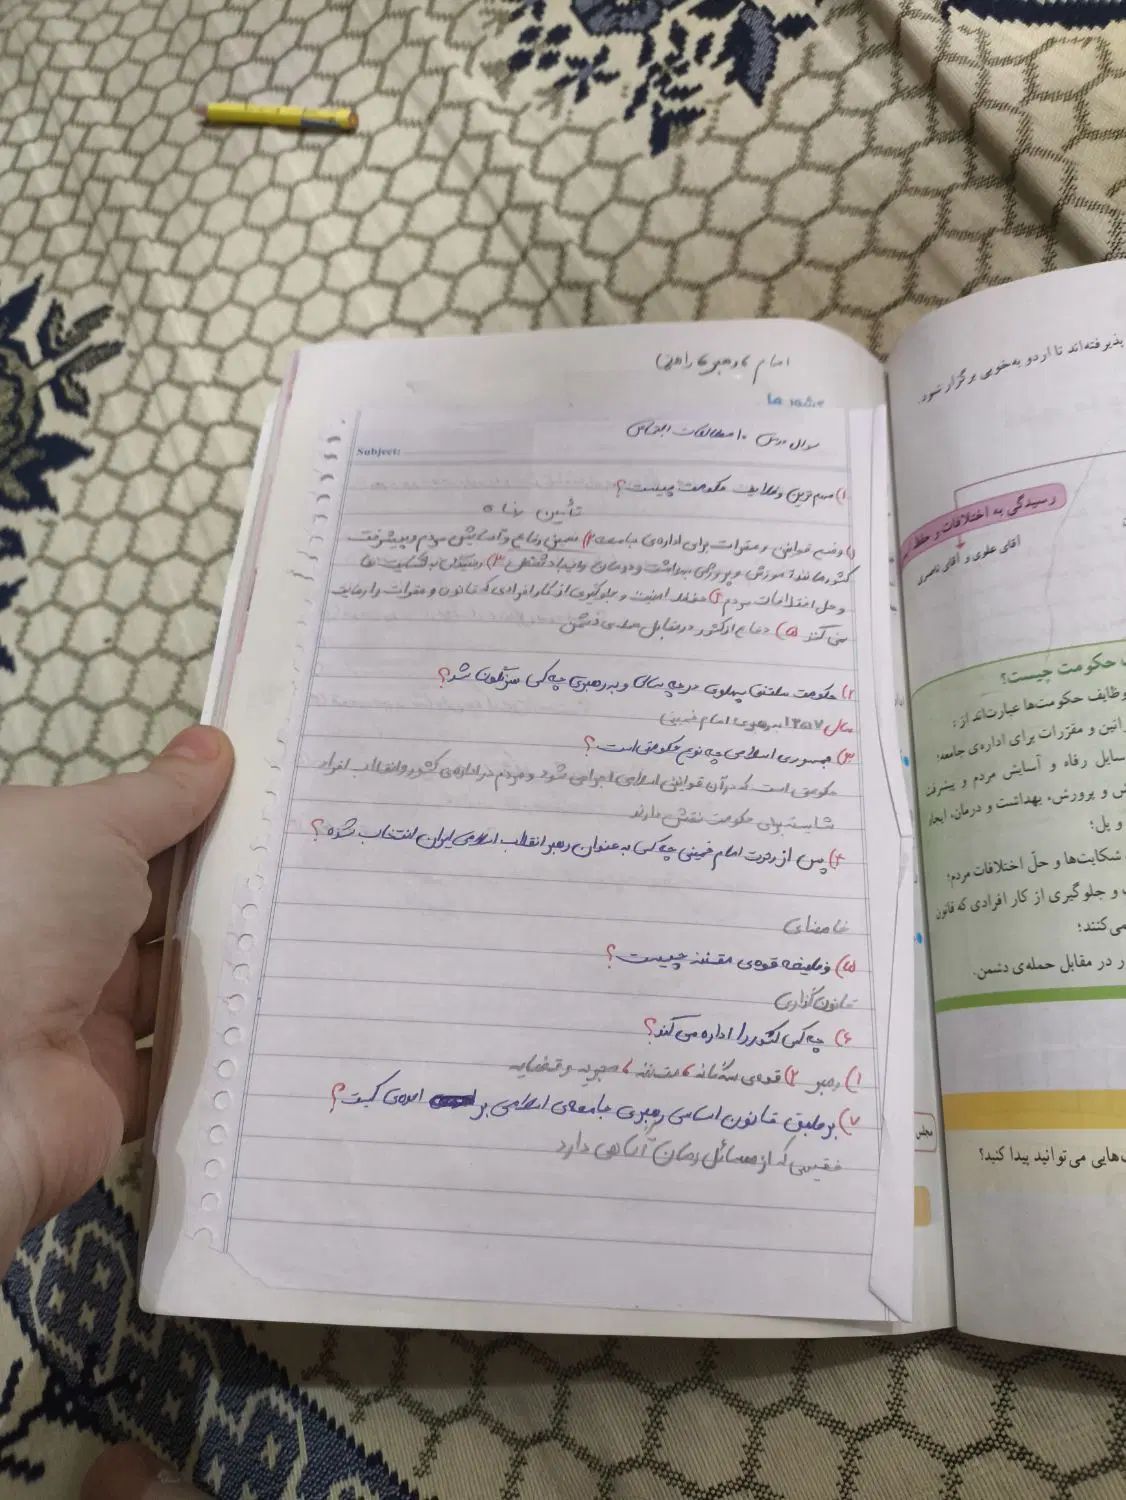 امام ، رهبر ، راهنما
کشور ما
سوال درس ۱۰ مطالعات اجتماعی
Subject:
۱) مهم ترین وظایف حکومت چیست؟
تأمین رفاه
۱) وضع قوانین و مقررات برای اداره‌ی جامعه ۲) تأمین رفاه و آسایش مردم و پیشرفت
کشور مانند: آموزش و پرورش بهداشت و درمان و ایجاد ۳) رسیدگی به شکایت ها
و حل اختلافات مردم ۴) حفظ امنیت و جلوگیری از کار افرادی که قانون و مقررات را رعایت
نمی کنند ۵) دفاع از کشور در مقابل حمله‌ی دشمن
۲) حکومت سلطنتی پهلوی در چه سالی و به رهبری چه کسی سرنگون شد؟
سال ۱۳۵۷ به رهبری امام خمینی
۳) جمهوری اسلامی چه نوع حکومتی است؟
حکومتی است که در آن قوانین اسلامی اجرا می شود و مردم در اداره‌ی کشور و انتخاب افراد
شایسته برای حکومت نقش دارند
۴) پس از رحلت امام خمینی چه کسی به عنوان رهبر انقلاب اسلامی ایران انتخاب شده؟
خامنه‌ای
۵) وظیفه قوه‌ی مقننه چیست؟
قانون گذاری
۶) چه کسی کشور را اداره می کند؟
۱) رهبر ۲) قوه‌ی سه گانه ، مقننه ، مجریه و قضاییه
۷) بر طبق قانون اساسی رهبری جامعه‌ی اسلامی بر عهده‌ی کیست؟
فقیهی که از مسائل زمان آگاهی دارد
پذیرفته‌اند تا اردو به‌خوبی برگزار شود.
رسیدگی به اختلافات و حفظ
آقای علوی و آقای ناصری
حکومت چیست؟
وظایف حکومت‌ها عبارت‌اند از:
و مقرّرات برای اداره‌ی جامعه؛
رفاه و آسایش مردم و پیشرفت
و پرورش، بهداشت و درمان، ایجاد
و پل؛
شکایت‌ها و حلّ اختلافات مردم؛
و جلوگیری از کار افرادی که قانون
می‌کنند؛
در مقابل حمله‌ی دشمن.
مجلس
می‌توانید پیدا کنید؟